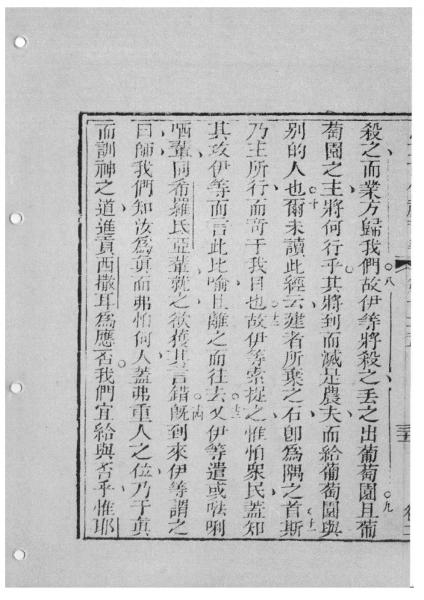 殺之而業方歸我們八故伊等將殺之丟之出葡萄園九且葡
萄園之主將何行乎其將到而滅是農夫而給葡萄園與
別的人也十爾未讀此經云建者所棄之石卽為隅之首十一斯
乃主所行而奇于我目也十二故伊等索捉之惟怕衆民蓋知
其攻伊等而言此比喻且離之而往去十三又伊等遣或唎
哂輩同希羅氏亞輩就之欲獲其言錯十四旣到來伊等謂之
曰師我們知汝為真而弗怕何人蓋弗重人之位乃于真
而訓神之道進貢西撒耳為應否我們宜給與否乎惟耶